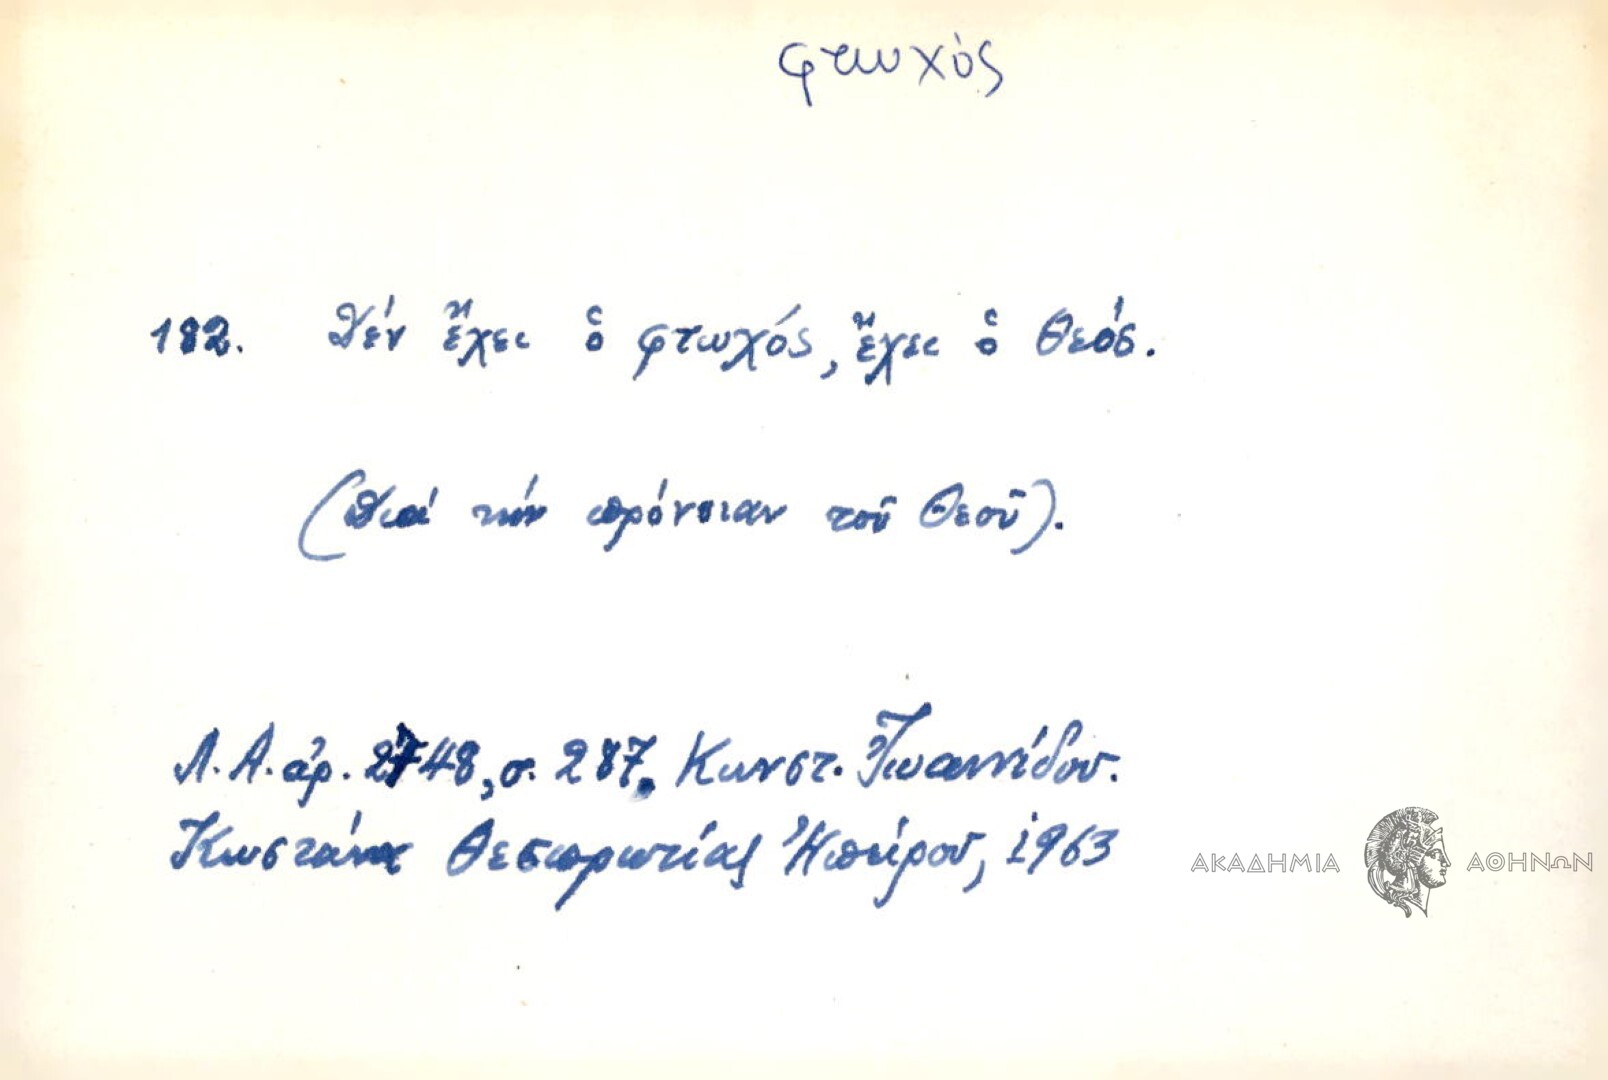 φτωχὸς
182. Δέν ἔχει ὁ φτωχός, ἔχει ὁ Θεός.
(Διά τήν πρόνοιαν τοῦ Θεοῦ).
Λ.Α. ἀρ. 2748, σ. 287, Κωνστ. Ἰωαννίδου.
Κωστάνα Θεσπρωτίας Ἠπείρου, 1963
ΑΚΑΔΗΜΙΑ ΑΘΗΝΩΝ